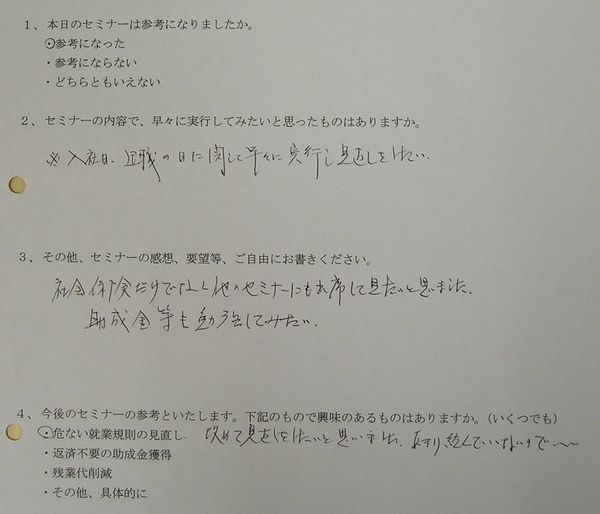 1、本日のセミナーは参考になりましたか。
・参考になった
・参考にならない
・どちらともいえない
2、セミナーの内容で、早々に実行してみたいと思ったものはありますか。
※入社日、退職の日に関して早々に実行し見直しをしたい.
3、その他、セミナーの感想、要望等、ご自由にお書きください。
社会保険だけでなく他のセミナーにも出席して見たいと思いました.
助成金等も勉強してみたい.
4、今後のセミナーの参考といたします。下記のもので興味のあるものはありますか。(いくつでも)
・危ない就業規則の見直し 改めて見直しをしたいと思いました.
・返済不要の助成金獲得
・残業代削減
・その他、具体的に